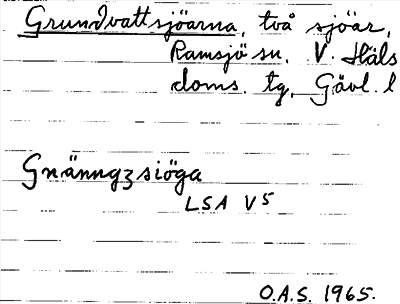 Grundvattsjöarna, två sjöar,
Ramsjö sn. V. Häls
doms. tg. Gävl. l
Gnänngzsiöga
LSA V5
O.A.S. 1965.